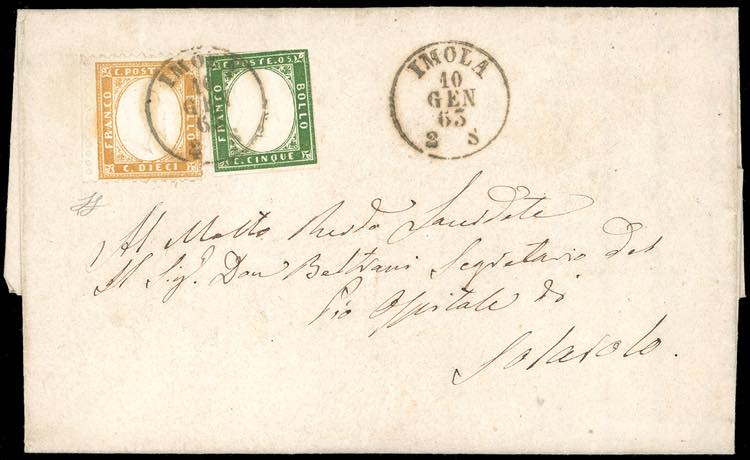 C. POSTE
FRANCO
BOLLO
C. DIECI
C. POSTE. O. S.
FRANCO
BOLLO
C. CINQUE
IMOLA
10
GEN
63
IMOLA
10
GEN
63
2 S
Al Molto Rev.do Sacerdote
Il Sig.r Don Beltrani Segretario del
Pio Ospitale di
Solarolo.